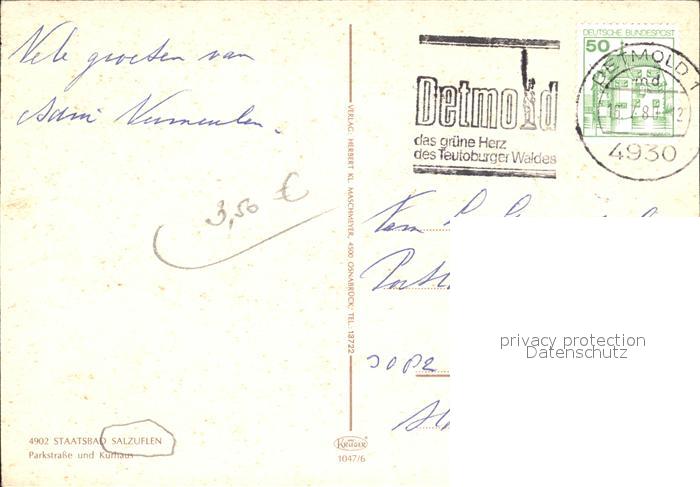 Vele groeten van
Adri Vermeulen.
3,50 €
4902 STAATSBAD SALZUFLEN
Parkstraße und Kurhaus
VERLAG: HERBERT KL. MASCHMEYER, 4500 OSNABRÜCK; TEL. 13722
KRÜGER
1047/6
Detmold
das grüne Herz
des Teutoburger Waldes
DEUTSCHE BUNDESPOST
50
DETMOLD 1
md
4930
Fam
3082
privacy protection
Datenschutz